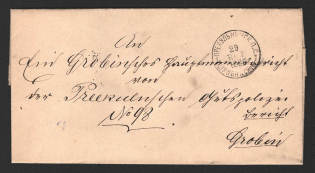 An
Ein Grobinsches Hauptmannsgericht
von
der Preekulnschen Gutspolizei
Bericht
No 98
Grobin
29